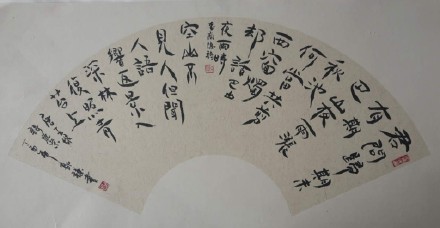 君問歸期未
有期
巴山夜雨漲
秋池
何當共剪
西窗燭
却話巴山
夜雨時
空山不
見人但聞
人語
響返景入
深林
復照青
苔上